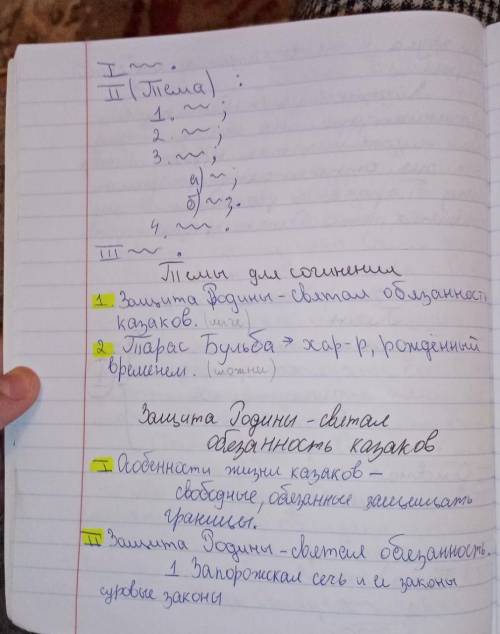 I ~~ .
II (Тема) :
1. ~~ ;
2. ~~ ;
3. ~~ ;
а) ~ ;
б) ~ ;.
4. ~~ .
III ~~ .
Темы для сочинения
1. Защита Родины - святая обязанность
казаков. (легче)
2. Тарас Бульба → хар-р, рождённый
временем. (сложнее)
Защита Родины - святая
обезанность казаков
I Особенности жизни казаков -
свободные, обязанные защищать
границы.
II Защита Родины - святая обязанность.
1 Запорожская сечь и её законы
суровые законы